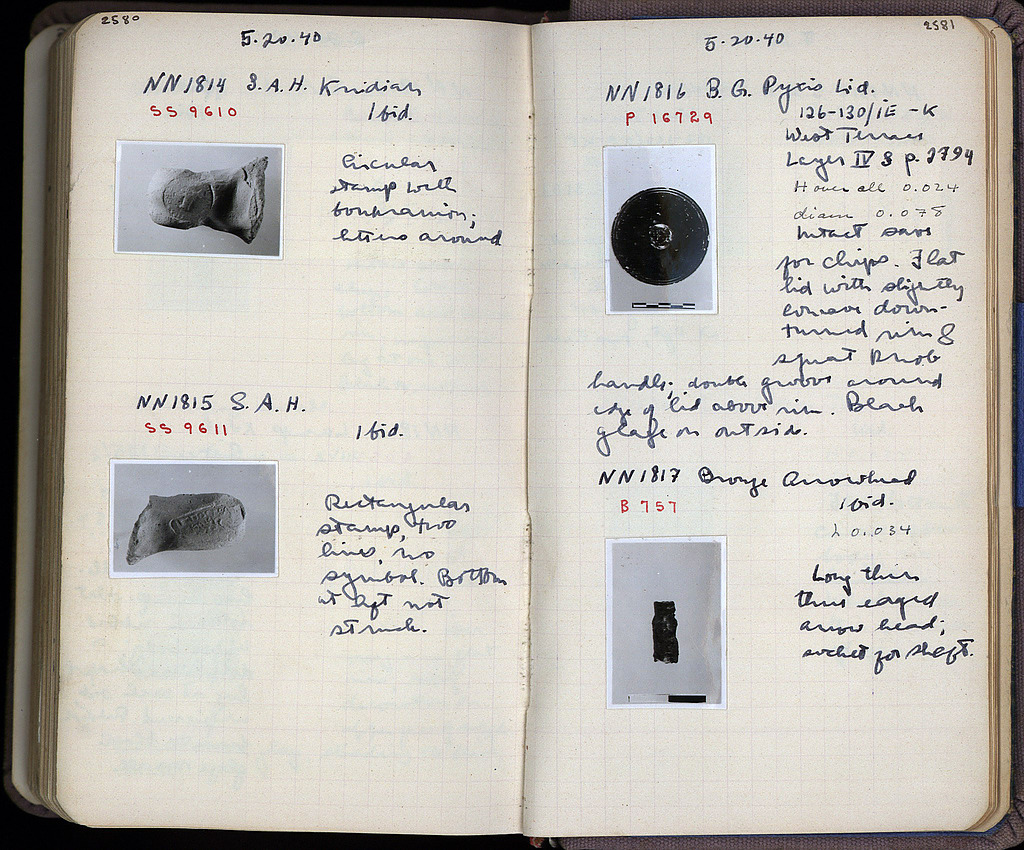 2580
5.20.40
NN1814 S.A.H. Knidian
SS 9610
Ibid.
Circular
stamp with
boukranion;
letters around
NN1815 S.A.H.
SS 9611
Ibid.
Rectangular
stamp, two
lines, no
symbol. Bottom
at left not
struck.
2581
5.20.40
NN1816 B.G. Pyxis Lid.
P 16729
126-130/IE -K
West Terrace
Layer IV 8 p. 2794
H over all 0.024
diam 0.078
Intact save
for chips. Flat
lid with slightly
concave down-
turned rim &
squat knob
handle; double groove around
edge of lid above rim. Black
glaze on outside.
NN1817 Bronze Arrowhead
B 757
Ibid.
L 0.034
Long thin
three edged
arrow head;
socket for shaft.